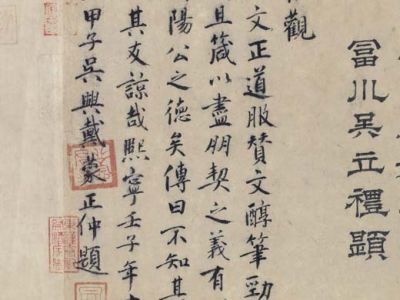 富川吳立禮題
觀
文正道服贊文醇筆勁
且箴以盡朋契之義有
陽公之德矣傳曰不知其
其友諒哉熙寧壬子年
甲子吳興戴蒙正仲題